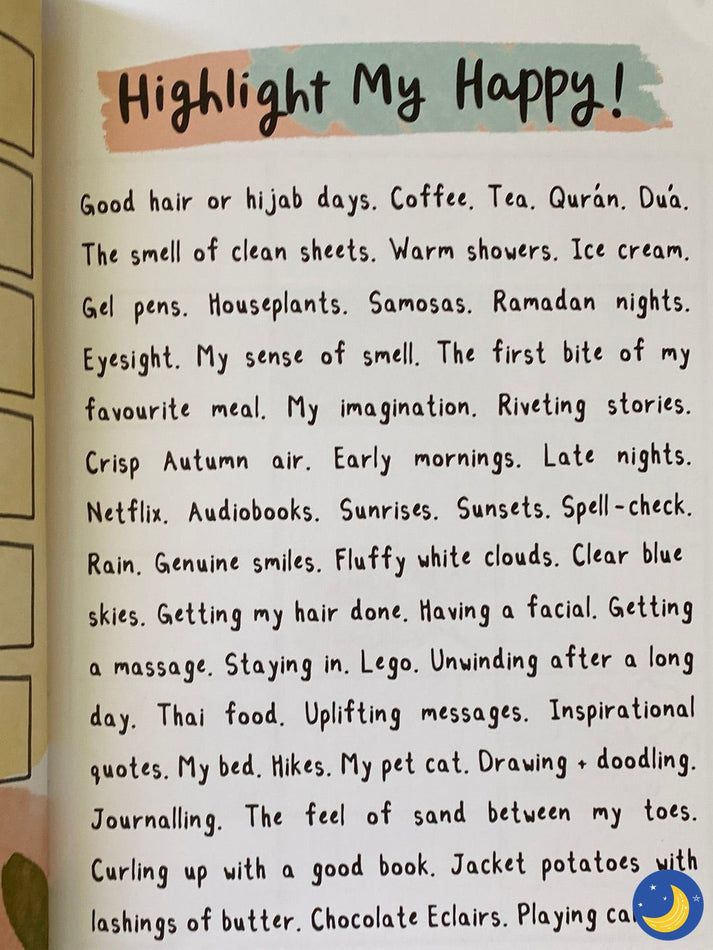 Highlight My Happy!
Good hair or hijab days. Coffee. Tea. Qurán. Duá.
The smell of clean sheets. Warm showers. Ice cream.
Gel pens. Houseplants. Samosas. Ramadan nights.
Eyesight. My sense of smell. The first bite of my
favourite meal. My imagination. Riveting stories.
Crisp Autumn air. Early mornings. Late nights.
Netflix. Audiobooks. Sunrises. Sunsets. Spell-check.
Rain. Genuine smiles. Fluffy white clouds. Clear blue
skies. Getting my hair done. Having a facial. Getting
a massage. Staying in. Lego. Unwinding after a long
day. Thai food. Uplifting messages. Inspirational
quotes. My bed. Hikes. My pet cat. Drawing + doodling.
Journalling. The feel of sand between my toes.
Curling up with a good book. Jacket potatoes with
lashings of butter. Chocolate Eclairs. Playing